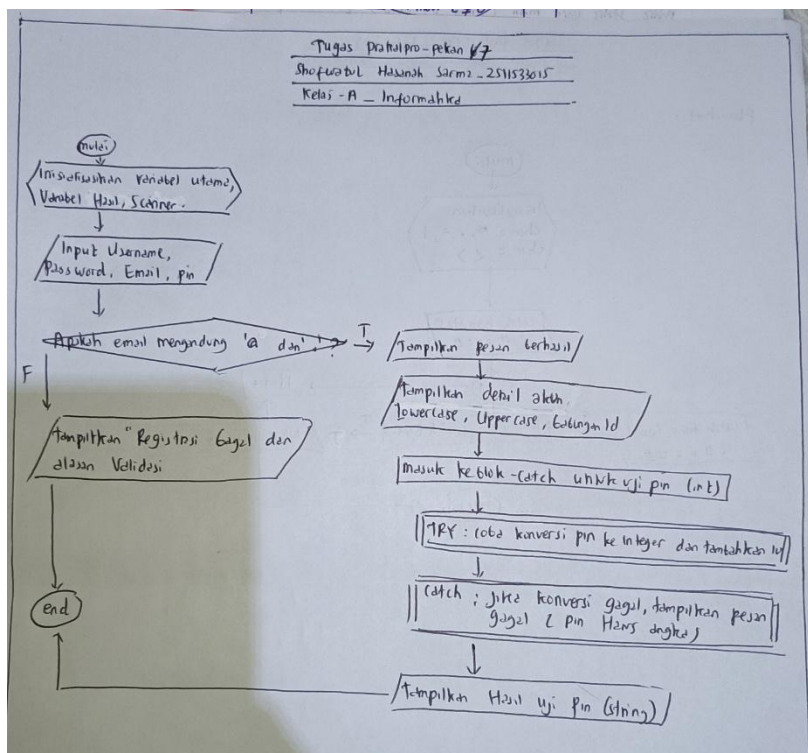 Tugas Prakalpro-pekan 7
Shofwatul Hasanah Sarma - 2511533015
Kelas - A - Informatika
mulai
Inisialisasikan Variabel utama,
Variabel Hasil, Scanner.
Input Username,
Password, Email, pin
Apakah email mengandung '@ dan '.' ?
T
F
Tampilkan pesan berhasil
Tampilkan detail akun
Lowercase, Uppercase, Gabungan Id
Tampilkan "Registrasi Gagal dan
alasan Validasi
masuk ke blok-Catch untuk uji pin (int)
TRY : coba konversi pin ke Integer dan tambahkan 10
Catch : Jika konversi gagal, tampilkan pesan
gagal ( pin Harus angka)
end
Tampilkan Hasil uji Pin (string)